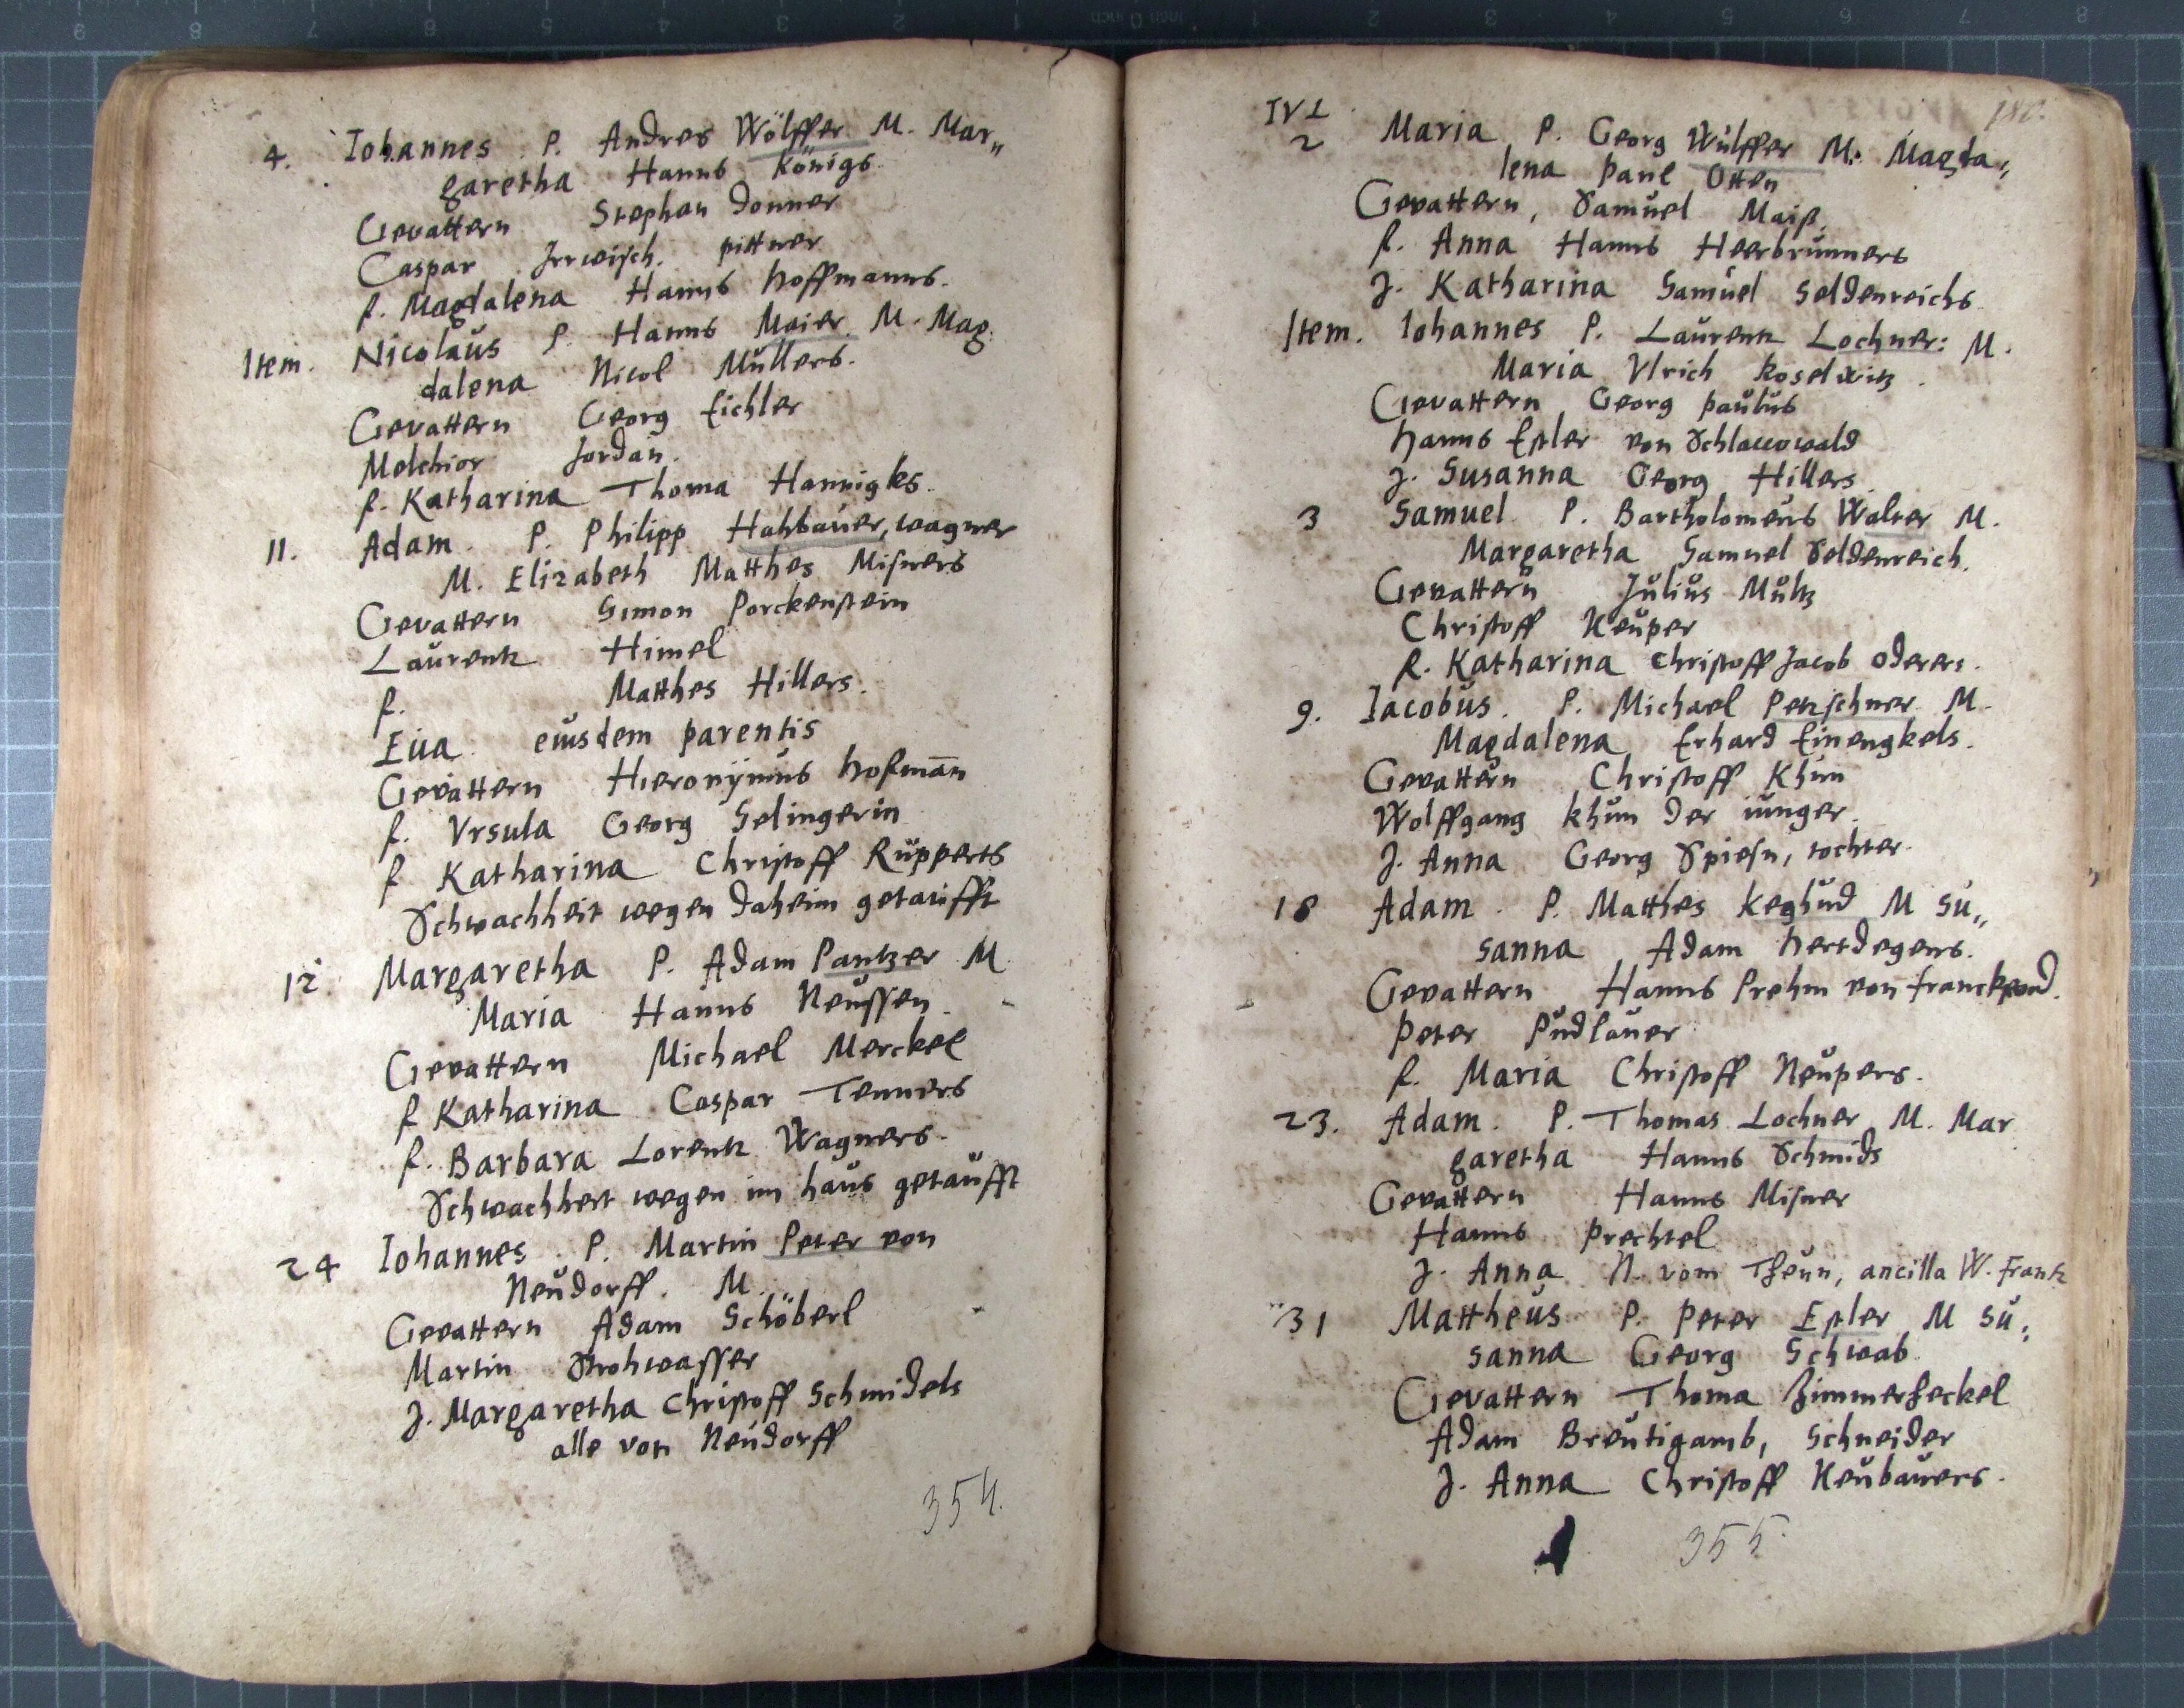 4. Iohannes P. Andres Wölffer M. Mar„
garetha Hanns Königs
Gevattern Stephan Donner
Caspar Irrwisch. pittner
f. Magdalena Hanns Hoffmanns.
Item. Nicolaus P. Hanns Maier M. Mag
dalena Nicol Müllers.
Gevattern Georg Eichler
Melchior Jordan.
f. Katharina Thoma Hannigks.
11. Adam P. Philipp Hahbauer, wagner
M. Elizabeth Matthes Misners
Gevattern Simon Porckenstein
Laurentz Himel
f. Matthes Hillers.
Eua eiusdem parentis
Gevattern Hieronÿmus Hofman̄
f. Vrsula Georg Selingerin
f Katharina Christoff Rupperts
Schwachheit wegen daheim getaufft
12 Margaretha P. Adam Pantzer M
Maria Hanns Neussen
Gevattern Michael Merckel
f Katharina Caspar Tenners
f. Barbara Lorentz Wagners.
Schwachheit wegen im haus getaufft
24 Iohannes P. Martin Peter von
Neudorff. M.
Gevattern Adam Schöberl
Martin Strohwasser
J. Margaretha Christoff Schmidels
alle von Neudorff
354.
180.
IVL
2 Maria P. Georg Wülffer M. Magda„
lena Paul Otten
Gevattern, Samuel Maiß
f. Anna Hanns Heerbrunners
J. Katharina Samuel Seldenreichs
Item. Iohannes P. Laurentz Lochner: M.
Maria Vlrich
Gevattern Georg Paulus
Hanns Estler von Schlaccowald
J. Susanna Georg Hillers
3 Samuel P. Bartholomeus Walter M.
Margaretha Samuel Seldenreich.
Gevattern Julius Multz
Christoff Neuper
f. Katharina Christoff Jacob Oderers.
9. Iacobus. P. Michael Petschner M.
Magdalena Erhard Einengkels.
Gevattern Christoff Khun
Wolffgang khun der iunger.
J. Anna Georg Spiesn, tochter.
18 Adam. P. Matthes keghud M Su„
sanna Adam Hertdegens.
Gevattern Hanns Prehm von
Peter Pudlauer
f. Maria Christoff Neupers.
23. Adam. P. Thomas Lochner M. Mar
garetha Hanns Schmids
Gevattern Hanns Misner
Hanns Prechtel
J. Anna N. vom Theun, ancilla W. Frantz
31 Mattheus P. Peter Estler M Su„
sanna Georg Schwab
Gevattern Thoma Zimmerheckel
Adam Breutigamb, Schneider
J. Anna Christoff Neubauers.
355.